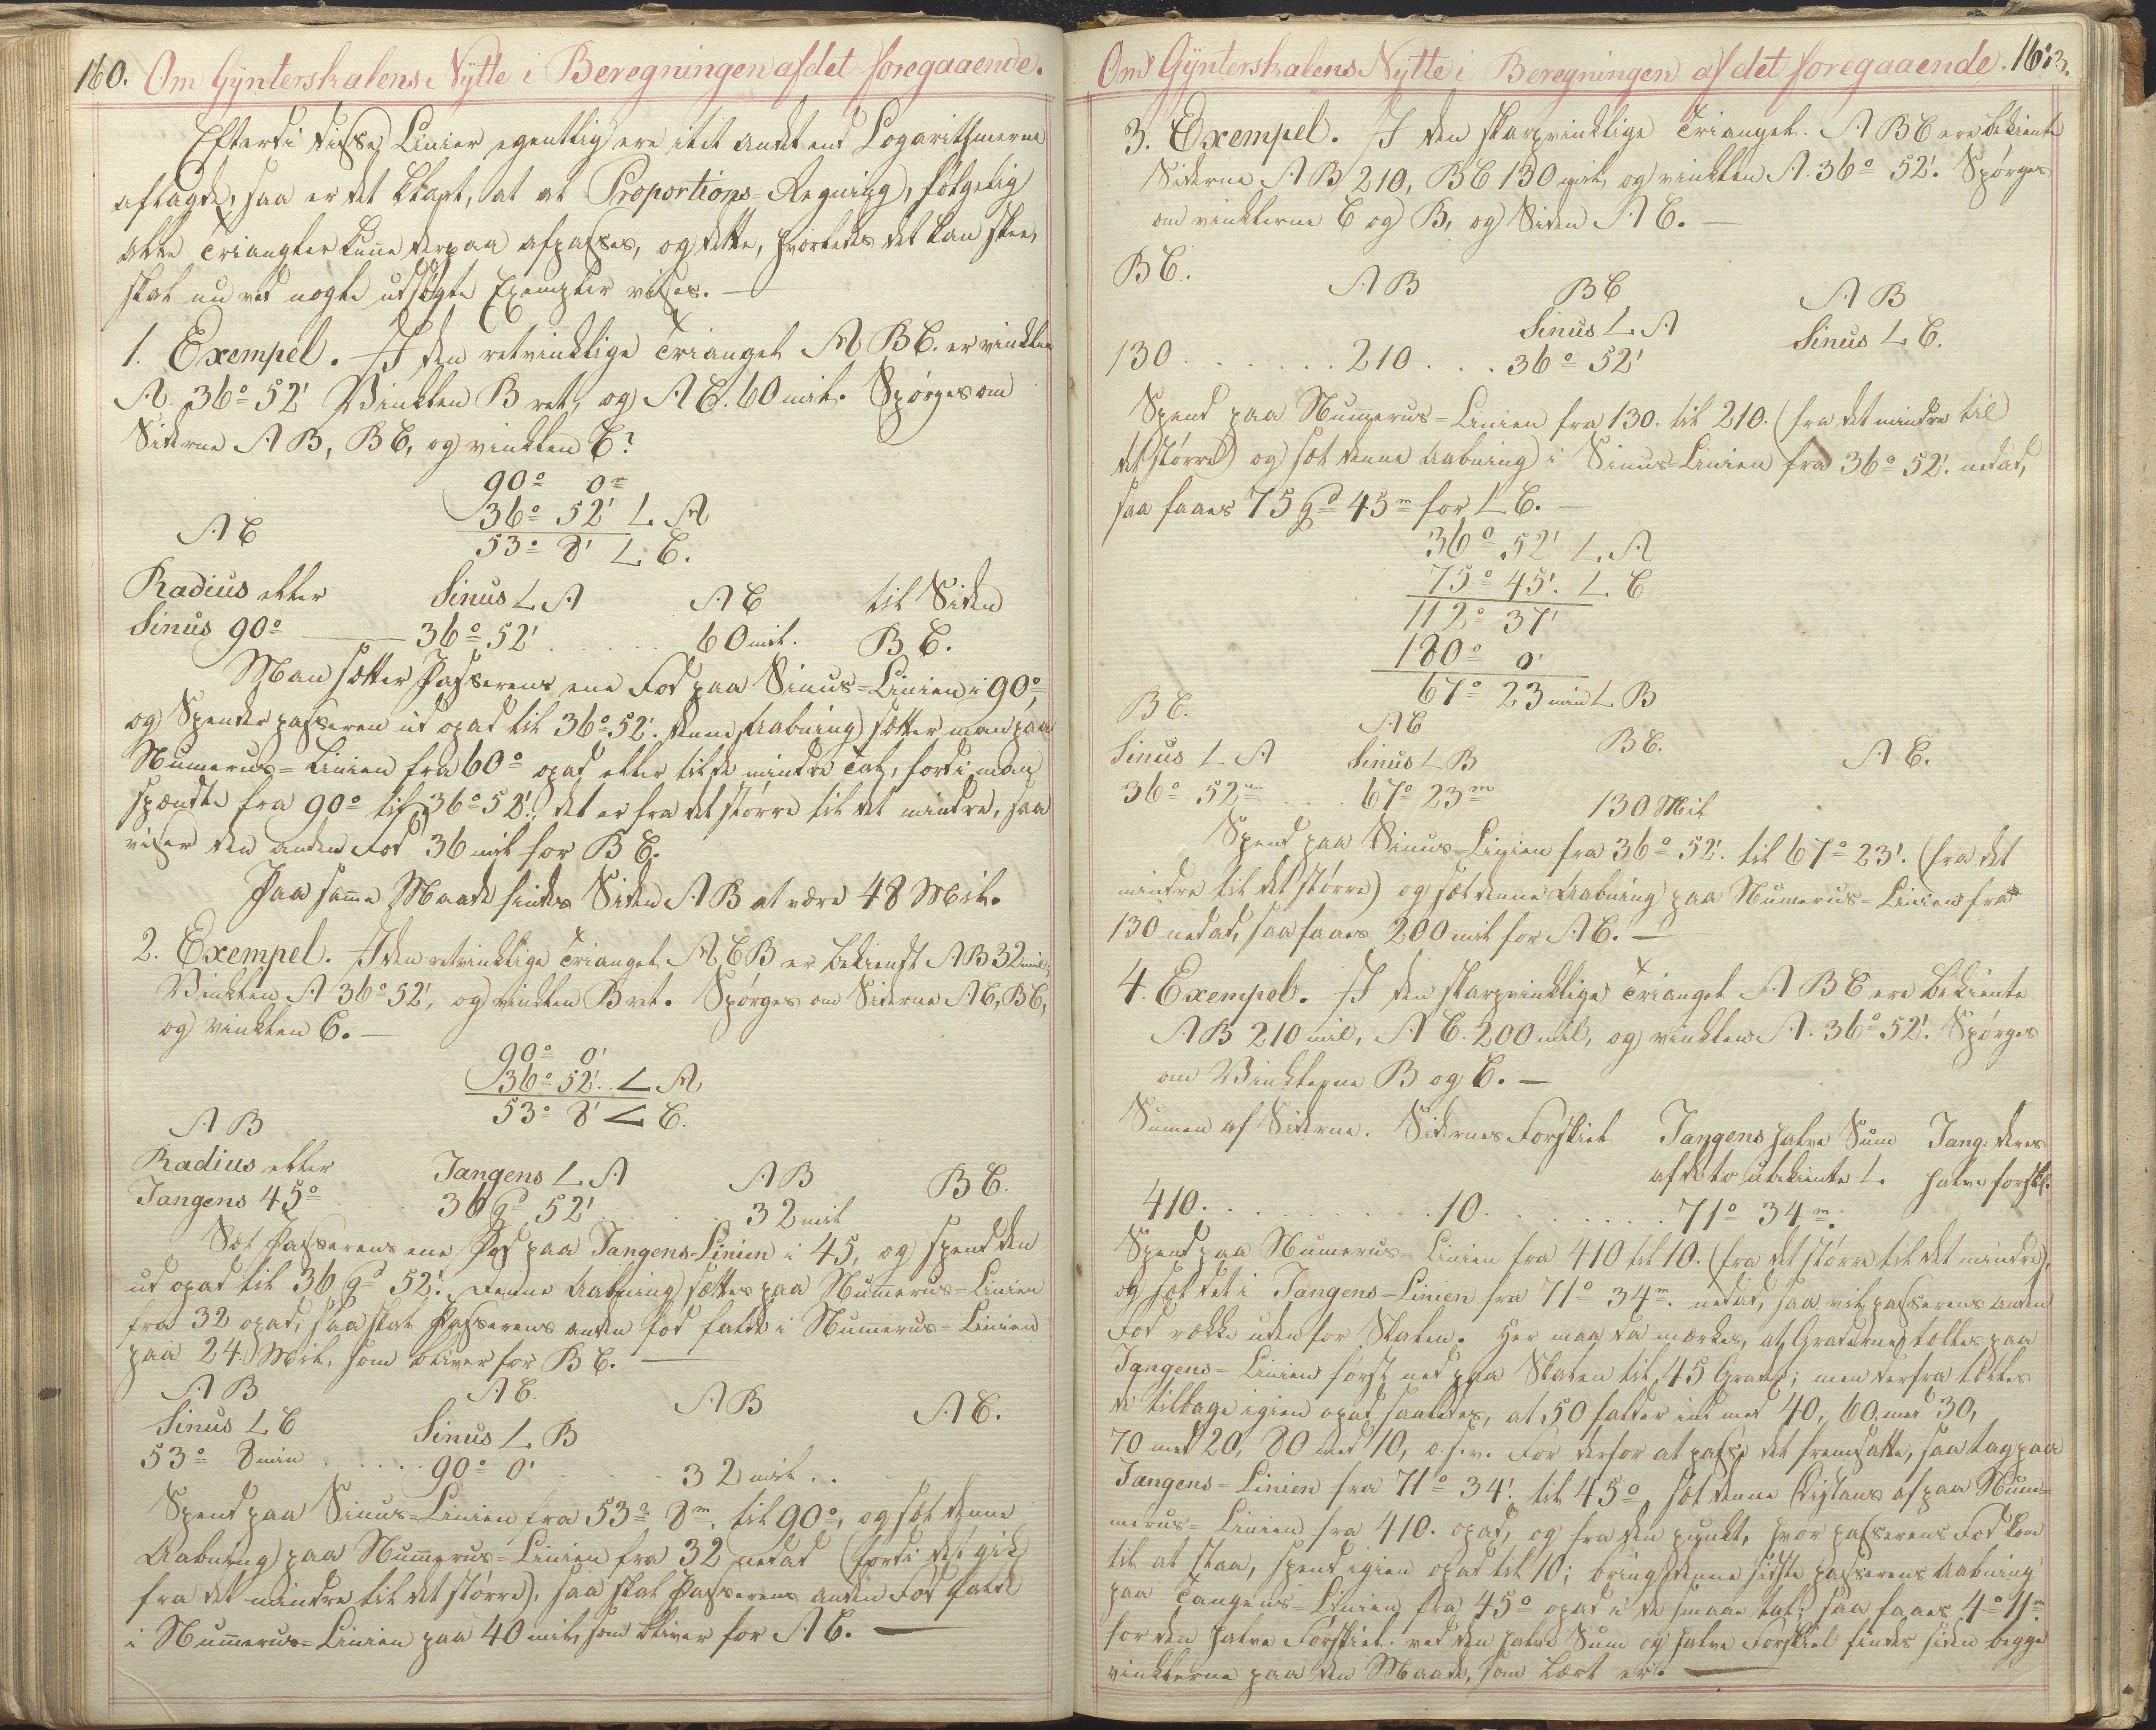 160. Om Gÿnterskalens Nÿtte i Beregningen af det foregaaende.
Efterdi disse Linier egentlig ere itit andet end Logarithmerne
aflagde, saa er det klart, at al Proportions-Regning, følgelig
alle Triangler kunne derpaa afpasses, og dette, hvorledes det kan skee,
skal nu ved nogle udsøgte Exempler vises. —
1. Exempel. I den retvinklige Triangel A B C. er vinklen
A. 36° 52' Vinklen B ret, og A C. 60 mil. Spørges om
Siderne A B, B C, og vinklen C?
90° 0m
36° 52' L A
53° 8' L C.
A C
Radius eller Sinus L A A C til Siden
Sinus 90° — 36° 52' . . . . . 60 mil. B C.
Man sætter Passerens ene Fod paa Sinus-Linien i 90°,
og Spender passeren ud opad til 36° 52'. denne Aabning sætter man paa
Numerus-Linien fra 60° opad eller til de mindre Tal, fordi man
spændte fra 90° til 36° 52', det er fra det større til det mindre, saa
viser den anden Fod 36 mil for B C.
Paa samme Maade findes Siden A B at være 48 Mil.
2. Exempel. I den retvinklige Triangel A C B er bekiendt A B 32 mil,
Vinklen A 36° 52', og vinklen B ret. Spørges om Siderne A C, B C,
og vinklen C. —
90° 0'
36° 52'. L A
53° 8' L C.
A B
Radius eller Tangens L A A B B C.
Tangens 45° . . . 36 gd 52' . . . . . 32 mil
Sæt Passerens ene Fod paa Tangens-Linien i 45, og spend den
ud opad til 36 gd 52'. denne Aabning sættes paa Nummerus-Linien
fra 32 opad, saa skal Passerens anden fod falde i Nummerus-Linien
paa 24. Mil, som bliver for B C. —
A B A C. A B A C.
Sinus L C Sinus L B
53° 8 min . . . . . 90° 0' . . . . . 32 mil . .
Spend paa Sinus-Linien fra 53° 8m. til 90°, og sæt denne
Aabning paa Nummerus-Linien fra 32 nedad (fordi det gik
fra det mindre til det større), saa skal Passerens anden Fod falde
i Nummerus-Linien paa 40 mil, som bliver for A C. —
Om Gÿnterskalens Nÿtte i Beregningen af det foregaaende.
3. Exempel. I den skarpvinklige Triangel. A B C ere bekiente
Siderne A B 210, B C 130 mil, og vinklen A. 36° 52'. Spørges
om vinklerne C og B, og Siden A C. —
B C. A B B C A B
Sinus L A Sinus L C.
130 . . . . . . 210 . . . 36° 52'
Spend paa Nummerus-Linien fra 130. til 210. (fra det mindre til
det større) og sæt denne Aabning i Sinus-Linien fra 36° 52'. nedad,
saa faaes 75 gd 45m for L C. —
36° 52' L. A
75° 45'. L. C
112° 37'
180° 0'
67° 23 min L B
B C. A C B C. A C.
Sinus L A Sinus L B
36° 52m . . . 67° 23m 130 Mil
Spend paa Sinus-Linien fra 36° 52'. til 67° 23'. (fra det
mindre til det større) og sæt denne Aabning paa Numerus-Linien fra
130 nedad, saa faaes 200 mil for A C. —
4. Exempel. I den skarpvinklige Triangel A B C ere bekiente
A B 210 mil, A C. 200 mil, og vinklen A. 36° 52'. Spørges
om Vinklerne B og C. —
Sumen af Siderne. Sidernes Forskiel Tangens halve Sum Tang: deres
af de to ubekiente L. halve forskl.
410. . . . . . . . . 10. . . . . . . . 71° 34m.
Spend paa Numerus-Linien fra 410 til 10. (fra det større til det mindre),
og sæt det i Tangens-Linien fra 71° 34m. nedad, saa vil passerens anden
Fod række uden for Skalen. Her maa da mærkes, at Graderne tælles paa
Tangens-Linien først ned paa Skalen til 45 Grader; men derfra tælles
de tilbage igien opad saaledes, at 50 falder ind med 40, 60 med 30,
70 med 20, 80 med 10, o.s.v. For derfor at passe det fremsatte, saa tag paa
Tangens-Linien fra 71° 34'. til 45°, sæt denne Distans af paa Num-
merus-Linien fra 410. opad, og fra den punkt, hvor passerens Fod kom
til at staa, spend igien opad til 10; bring denne sidste passerens Aabning
paa Tangens-Linien fra 45° opad i de smaae tal; saa faaes 4° 11m.
for den halve Forskiel. ved den halve Sum og halve Forskiel findes siden begge
vinklerne paa den Maade, som lært er. —